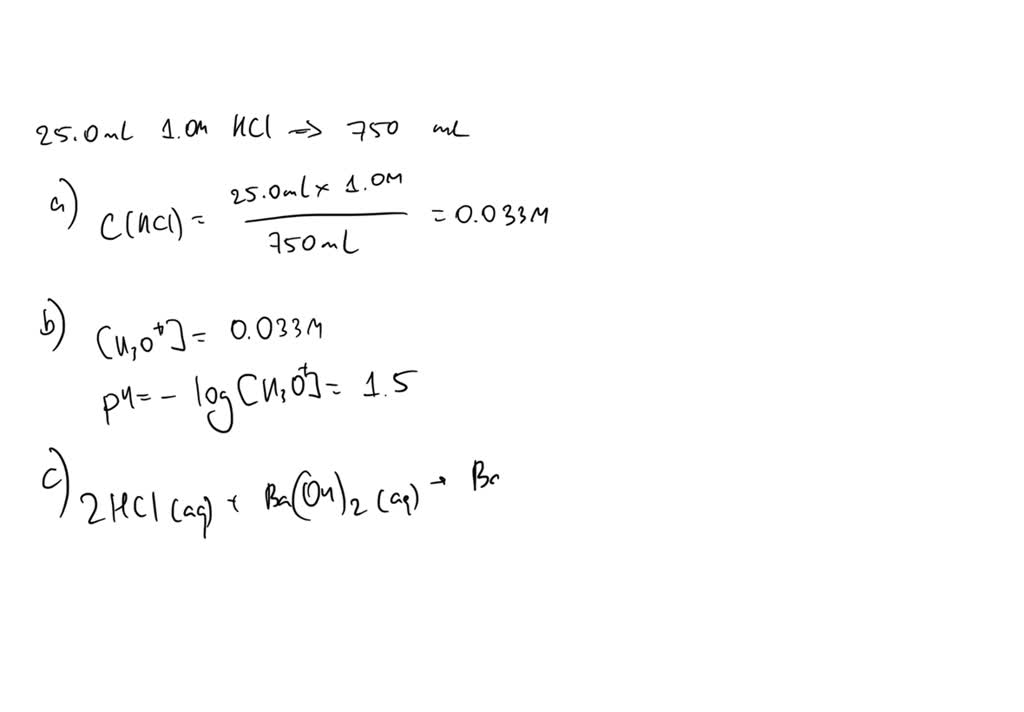 25.0mL 1.0M HCl => 750 mL
a) C(HCl) = 25.0ml x 1.0M / 750mL = 0.033M
b) [H3O+] = 0.033M
pH = - log[H3O+] = 1.5
c) 2HCl(aq) + Ba(OH)2(aq) → Ba